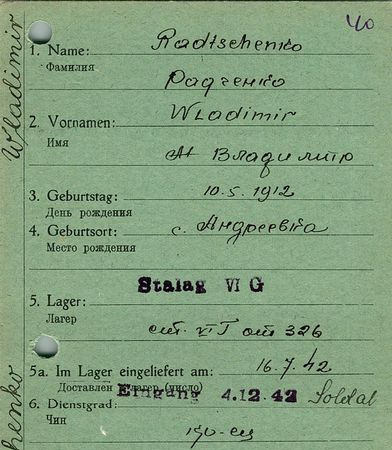 40
Wladimir
1. Name: Radtschenko
Фамилия
Радченко
2. Vornamen: Wladimir
Имя
Владимир
3. Geburtstag: 10.5.1912
День рождения
4. Geburtsort: с. Андреевка
Место рождения
Stalag VI G
5. Lager:
Лагерь
шт. VI от 326
5a. Im Lager eingeliefert am: 16.7.42
Доставлен в лагерь (число)
Eingang 4.12.42 Soldat
6. Dienstgrad:
Чин
henko